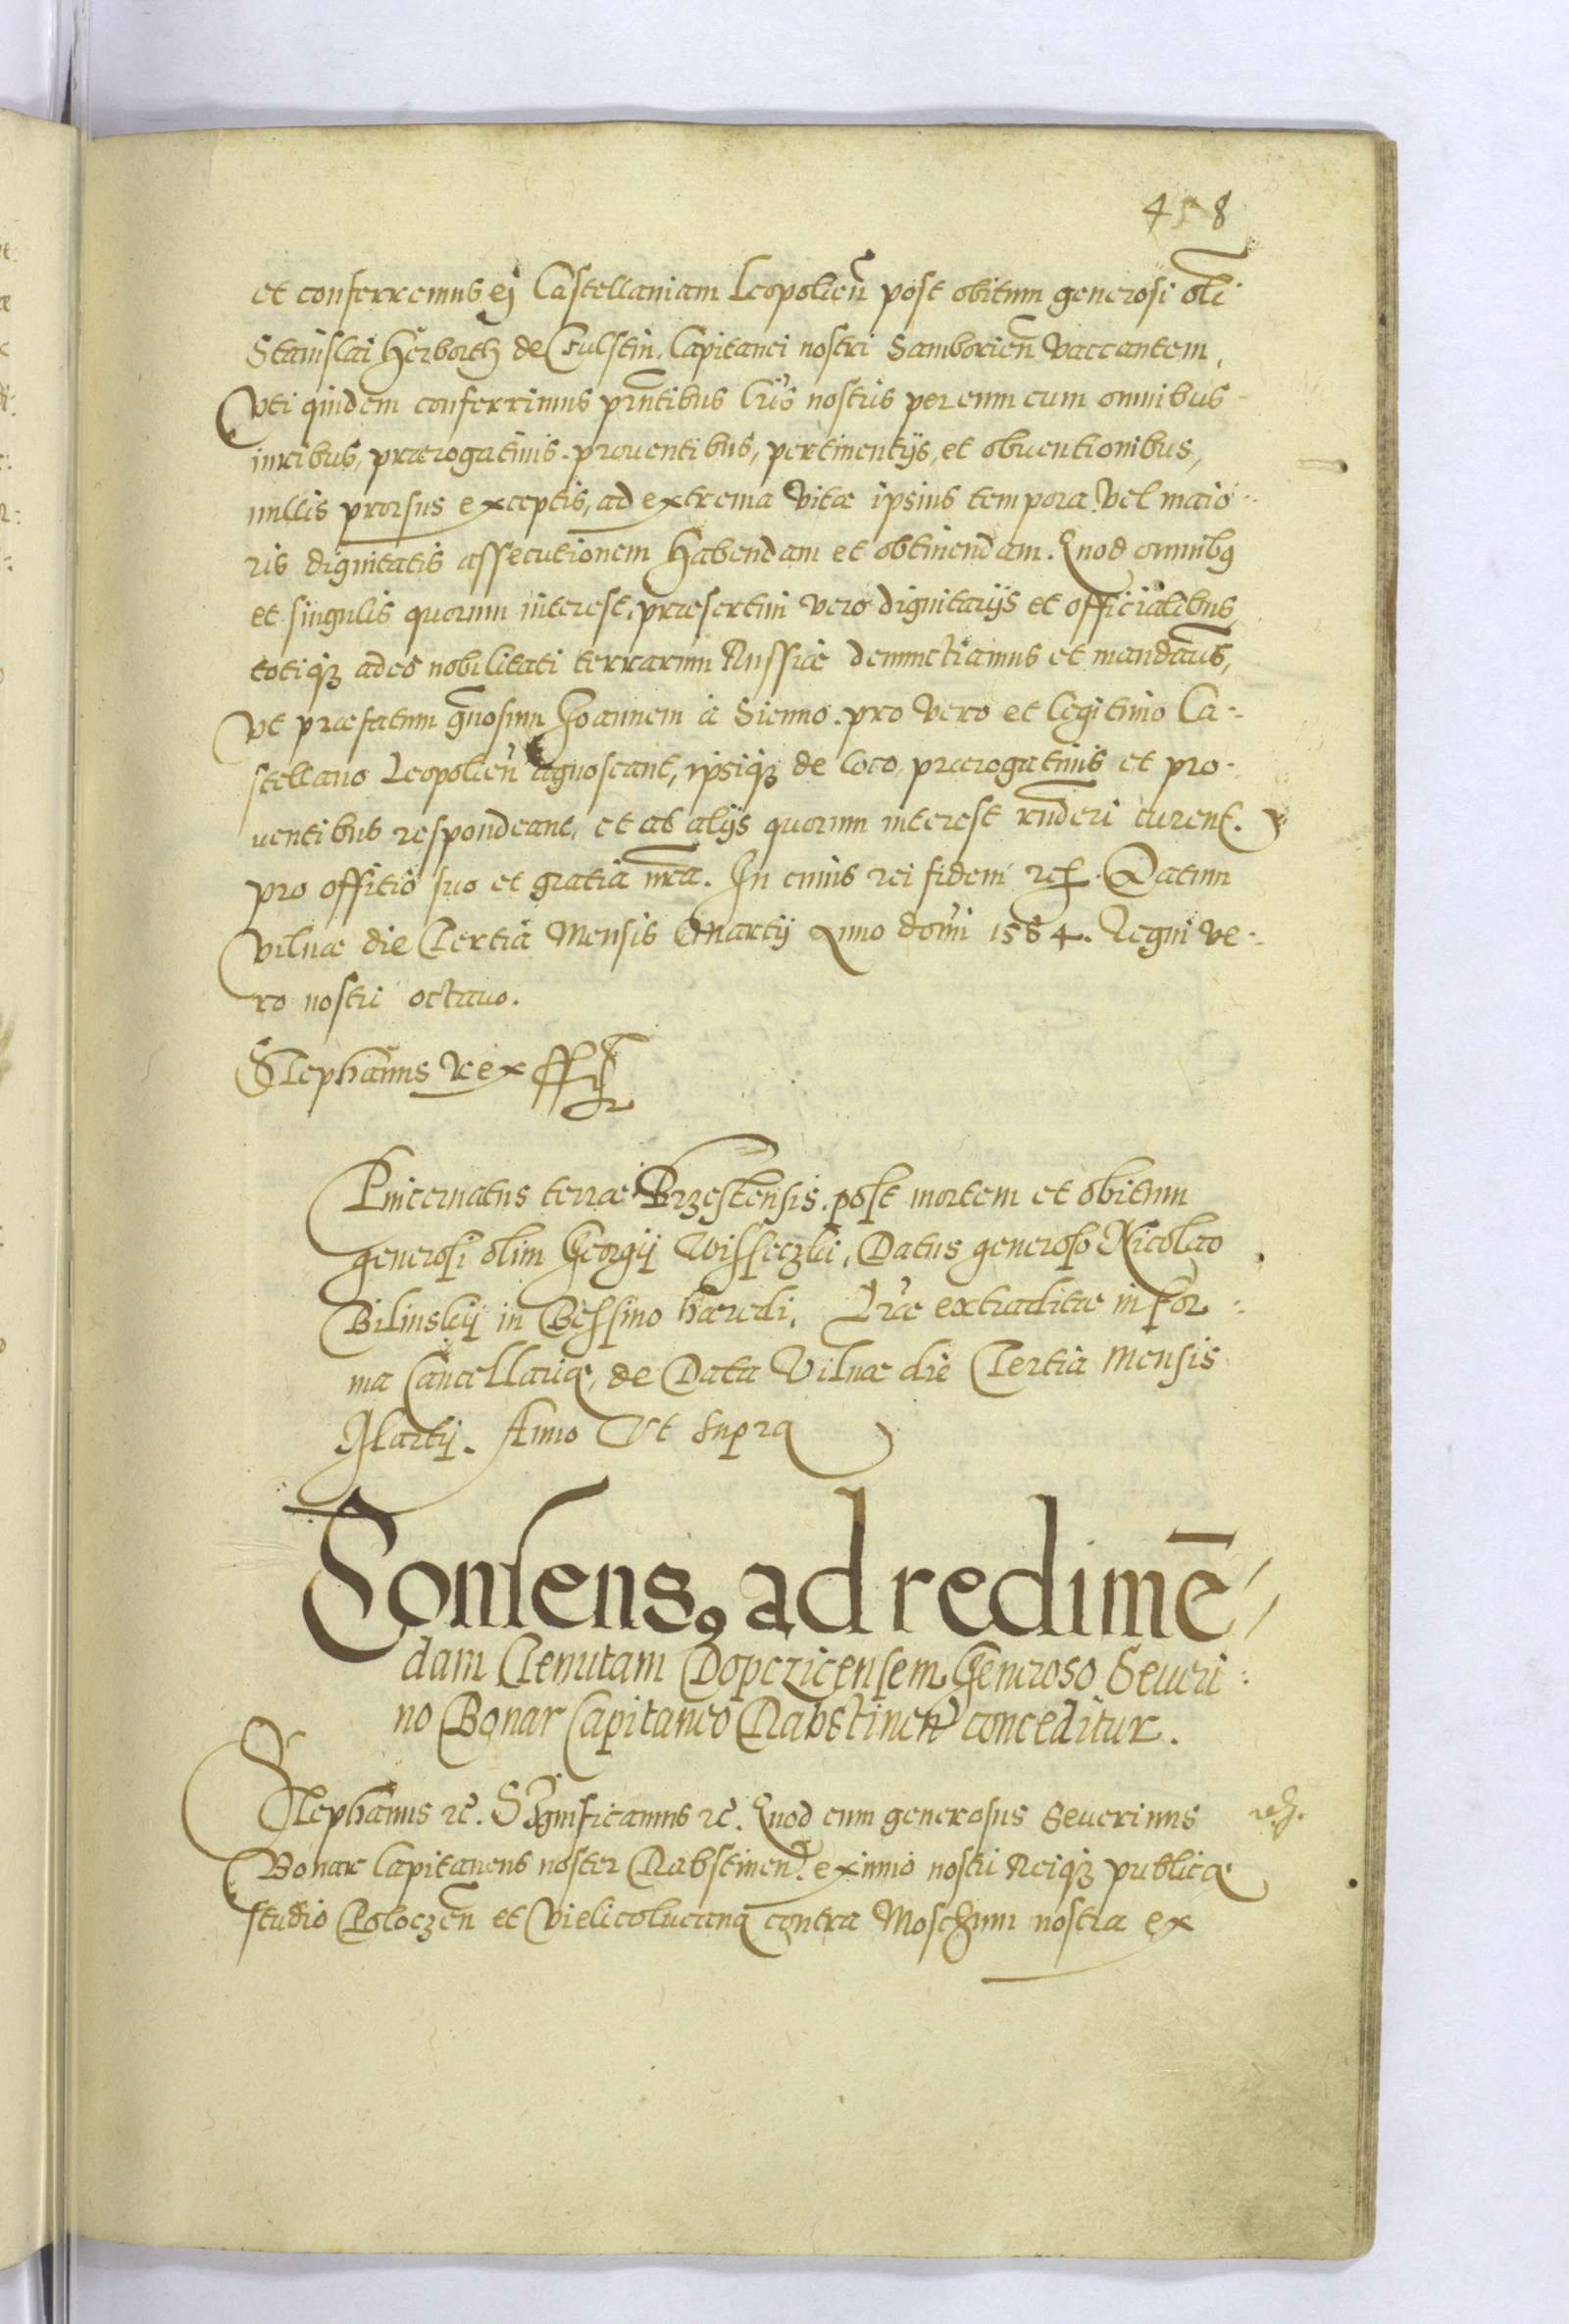 458
et conferremus ej Castellaniam Leopolien̄ post obitum generosi oli
Stanislai Herborth de Fulstin, Capitanei nostri Samborien̄ vaccantem,
Vti quidem conferrimus prn̄tibus lr̄is nostris per eum cum omnibus
iuribus, prærogatiuis, prouentibus, pertinentijs, et obuentionibus,
nullis prorsus exceptis, ad extrema vitæ ipsius tempora, vel maio-
ris dignitatis assecutionem habendam et obtinendam. Quod omnibus
et singulis quorum interest, præsertim vero dignitarijs et officialibus,
totiqꝫ adeo nobilitati terrarum Russiæ denunctiamus et mandam̄us,
Vt præfatum gn̄osum Joannem a Sienno, pro vero et legitimo Ca-
stellano Leopolien̄ agnoscant, ipsiqꝫ de loco, prærogatiuis et pro-
uentibus respondeant, et ab alijs quorum interest rn̄deri curent.
pro offitio suo et gratia nr̄a. In cuius rei fidem etc. Datum
Vilnæ die Tertia Mensis Martij Anno dom̄i 1584. Regni ve-
ro nostri octauo.
Stephanus Rex
Pincernatus terræ Brzestensis, post mortem et obitum
generosi olim Georgij Wisseczki, Datus generoso Nicolao
Bilinskij in Bessino hæredi, Lr̄æ extraditæ in for-
ma Cancellariæ, de Data Vilnæ die Tertia Mensis
Martij. Anno Vt supra
Consensꝯ ad redimē
dam Tenutam Dopczicensem Generoso Seueri-
no Bonar Capitaneo Rabstinen̄ conceditur.
Stephanus etc̄. Significamus etc̄. Quod cum generosus Seuerinus
Bonar Capitaneus noster Rabstinen̄. eximio nostri Reiqꝫ publicæ
studio Poloczen̄ et Vielicolucana contra Moschum nostra ex